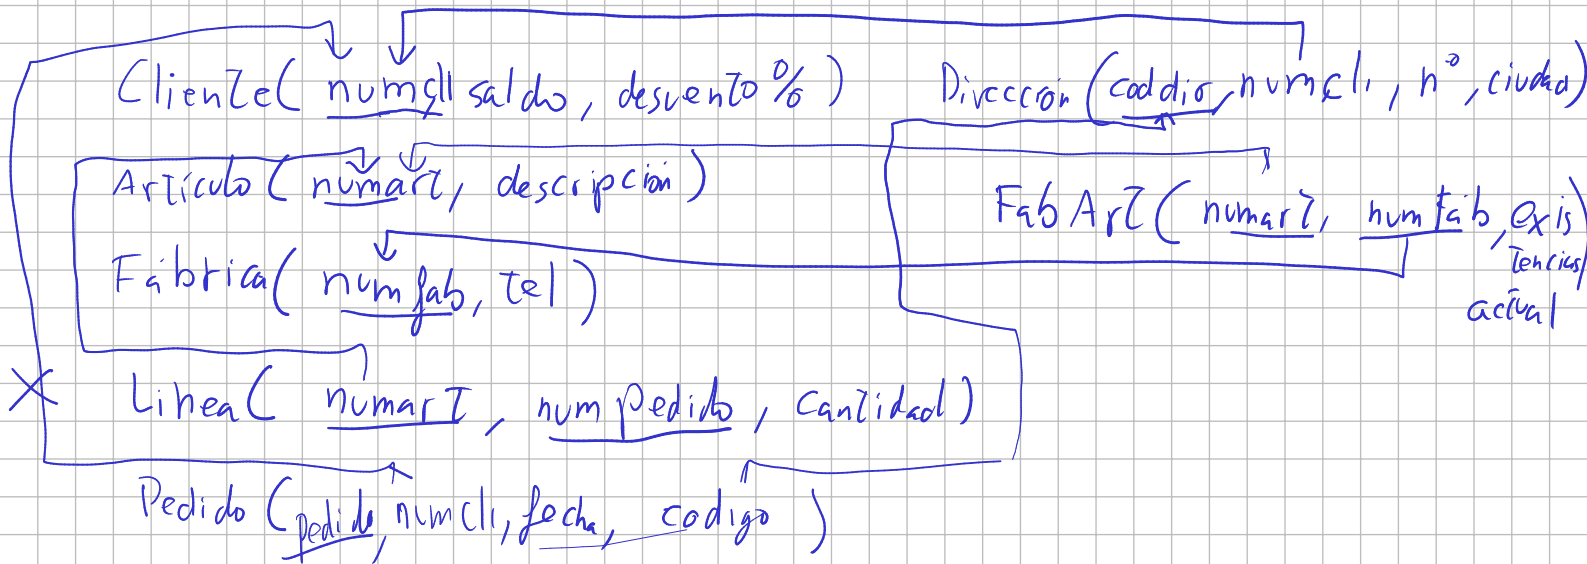 Cliente( numcli saldo, desvento % ) Dirección (coddir, numcli, nº, ciudad)
Artículo ( numart, descripción ) Fab Art ( numart, num fab, exis
tencias)
actual
Fábrica( num fab, tel )
Linea( numart, num pedido, cantidad )
Pedido ( pedido, numcli, fecha, codigo )